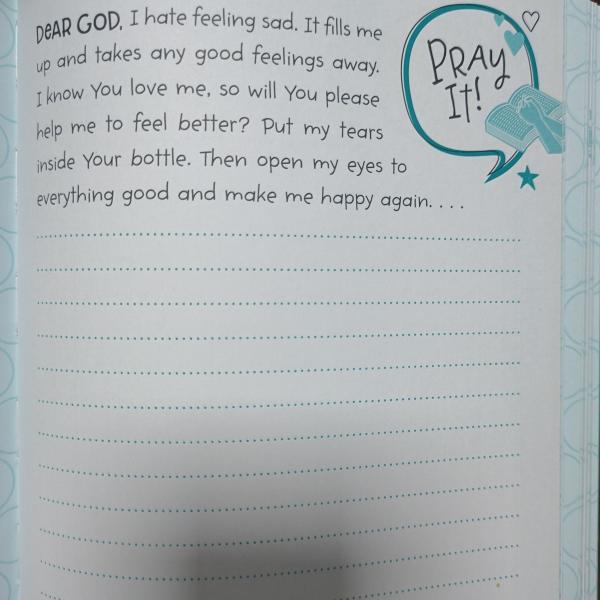 DEAR GOD, I hate feeling sad. It fills me
up and takes any good feelings away.
I know You love me, so will You please
help me to feel better? Put my tears
inside Your bottle. Then open my eyes to
everything good and make me happy again. . . .
PRAY
It!